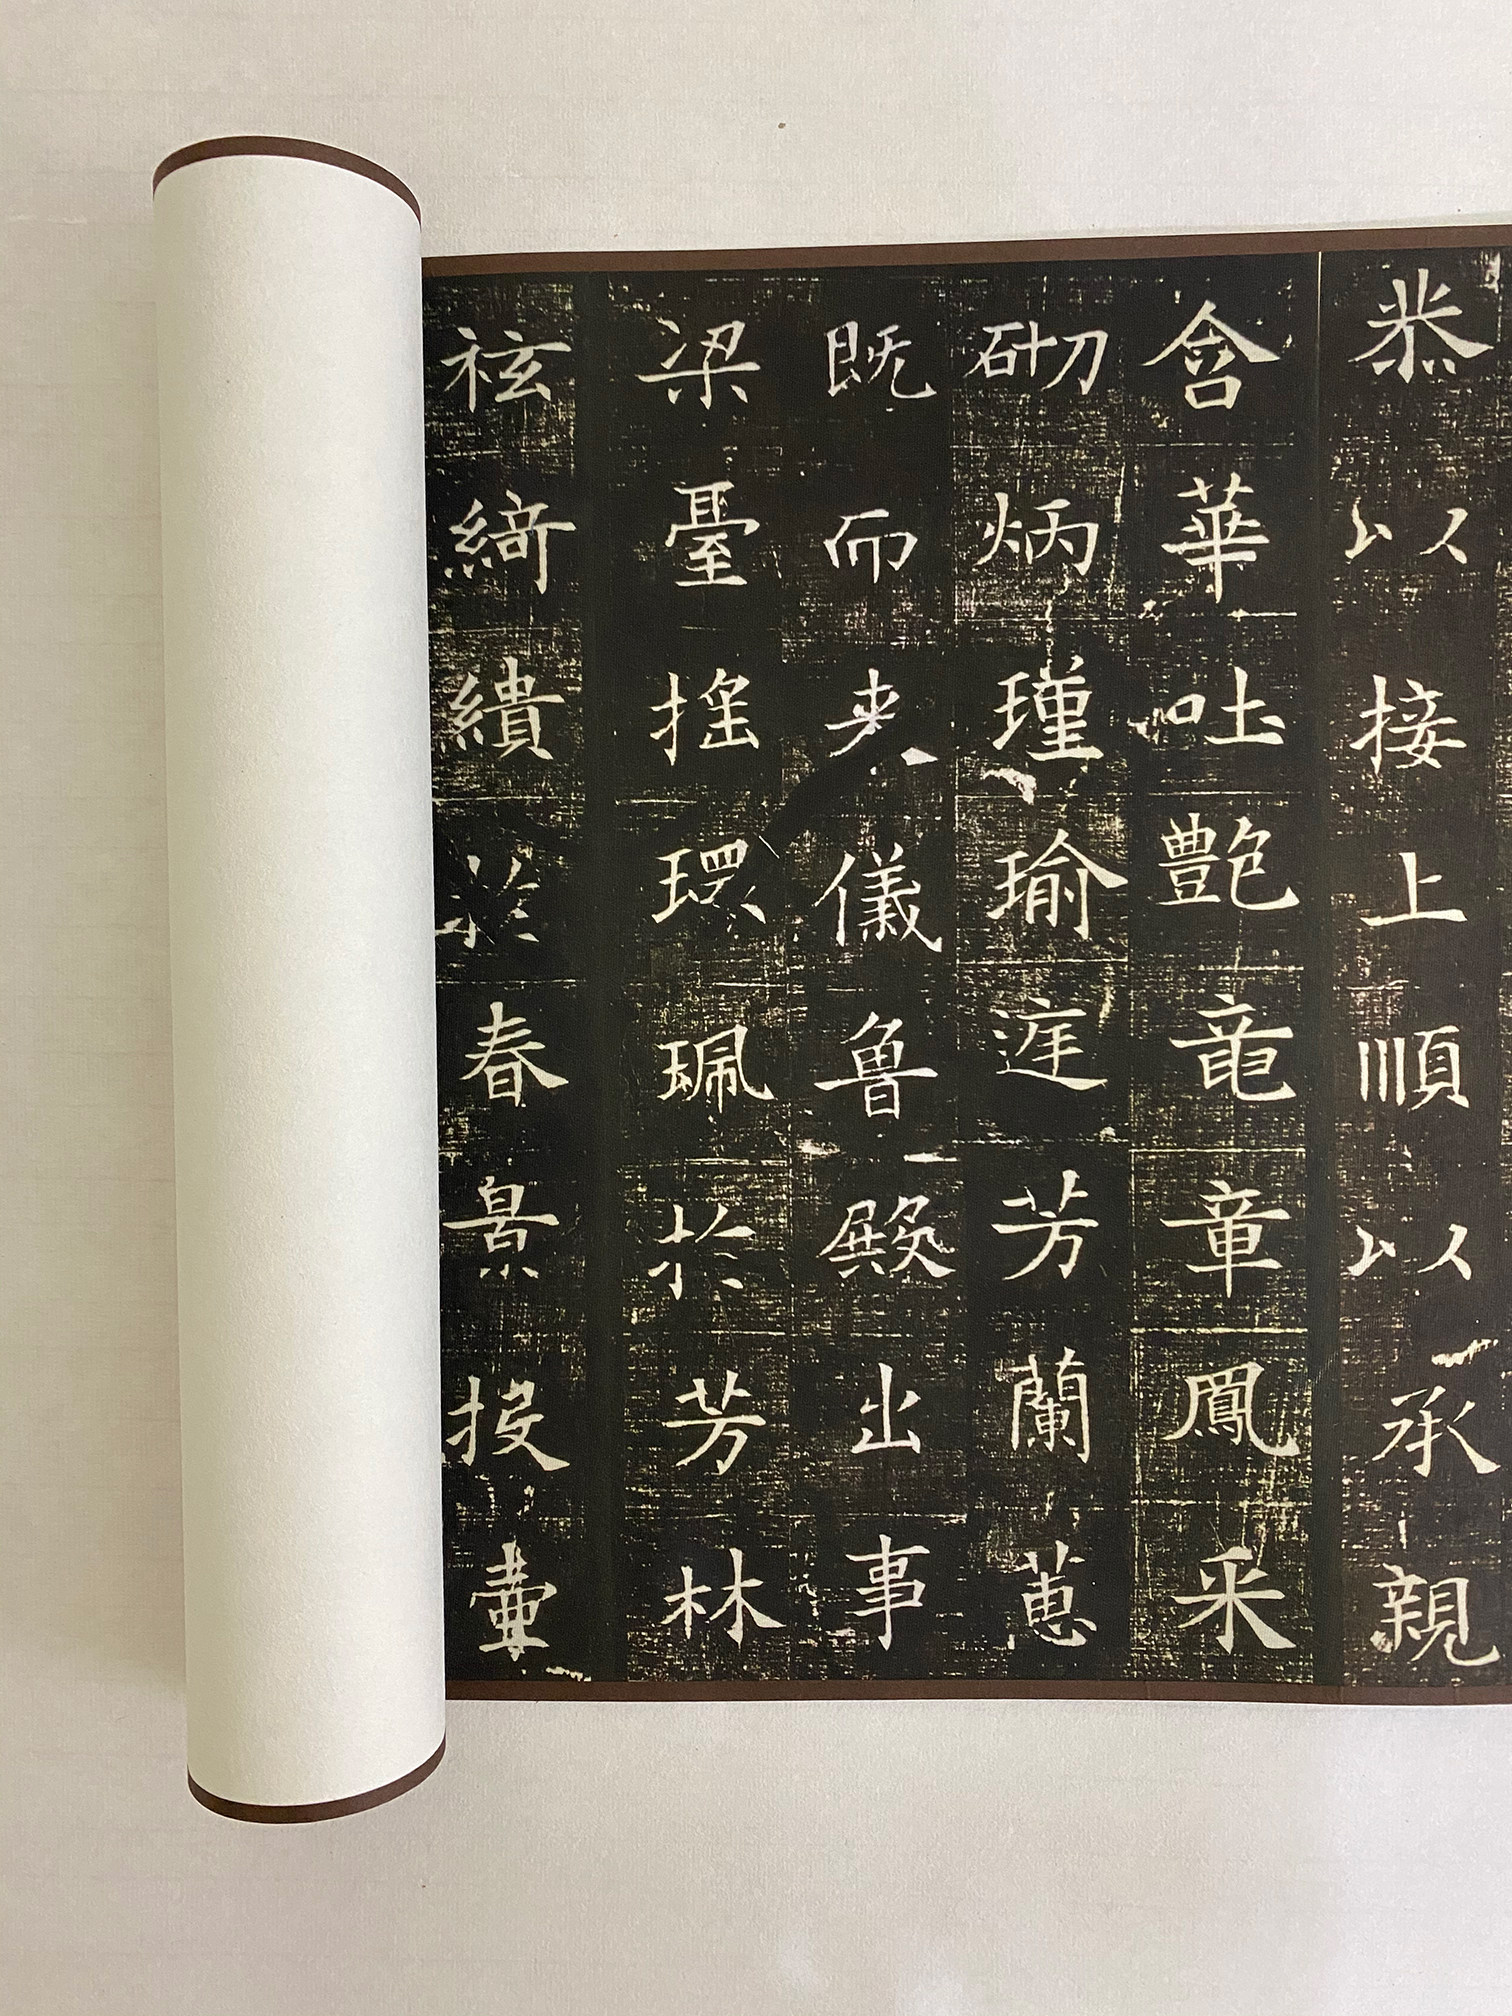 恭以接上順以承親
含華吐艷竜章鳳采
砌炳瑾瑜庭芳蘭蕙
既而来儀魯殿出事
梁臺搖環珮於芳林
袨綺繢於春景投壺